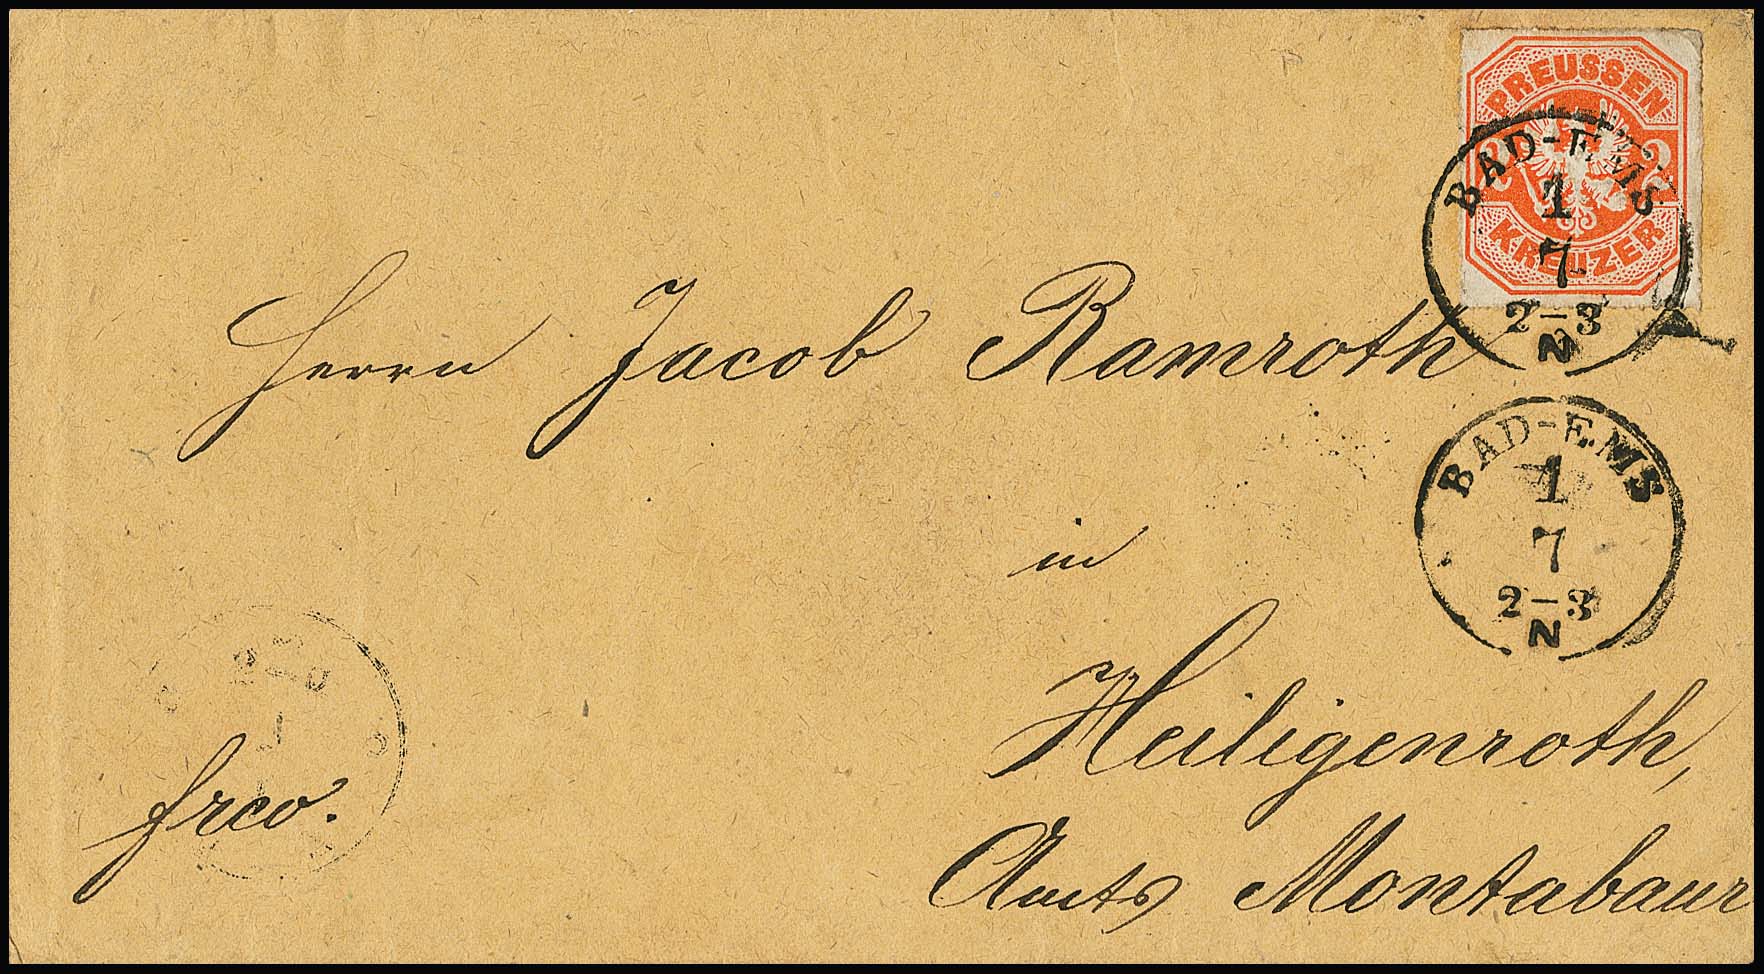 PREUSSEN
2 2
KREUZER
BAD-EMS
1
7
2-3
N
Herrn Jacob Ramroth
BAD-EMS
1
7
2-3
N
in
Heiligenroth,
frco.
Amts Montabaur